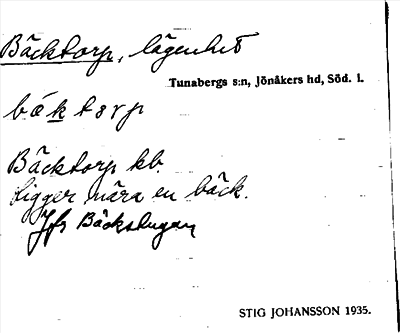 Bäcktorp, lägenhet
Tunabergs s:n, Jönåkers hd, Söd. l.
bäktorp
Bäcktorp kb.
ligger nära en bäck.
Jfr Bäckstugan
STIG JOHANSSON 1935.